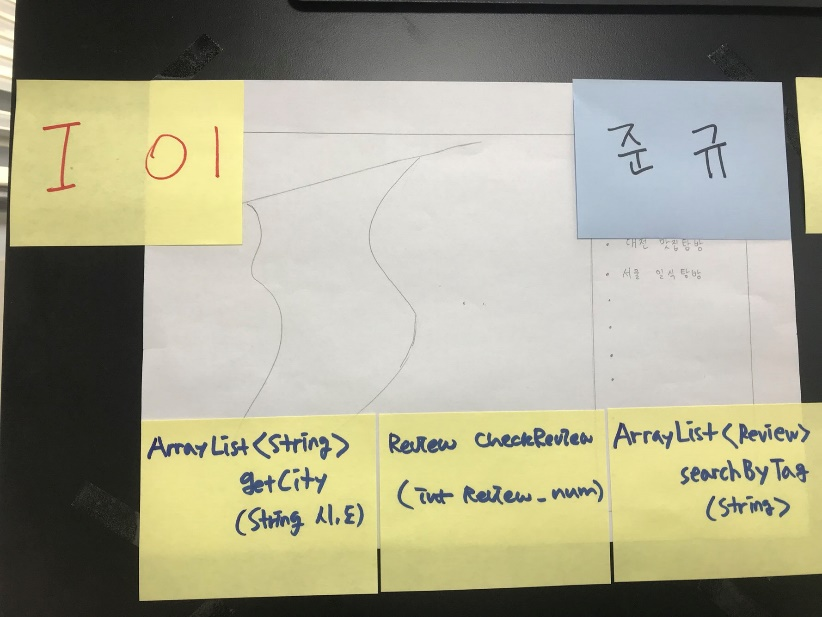 I 이
준 규
• 대전 맛집탐방
• 서울 일식탐방
•
•
•
•
ArrayList<String>
getCity
(String 시,도)
Review CheckReview
(int Review_num)
ArrayList<Review>
searchByTag
(String)